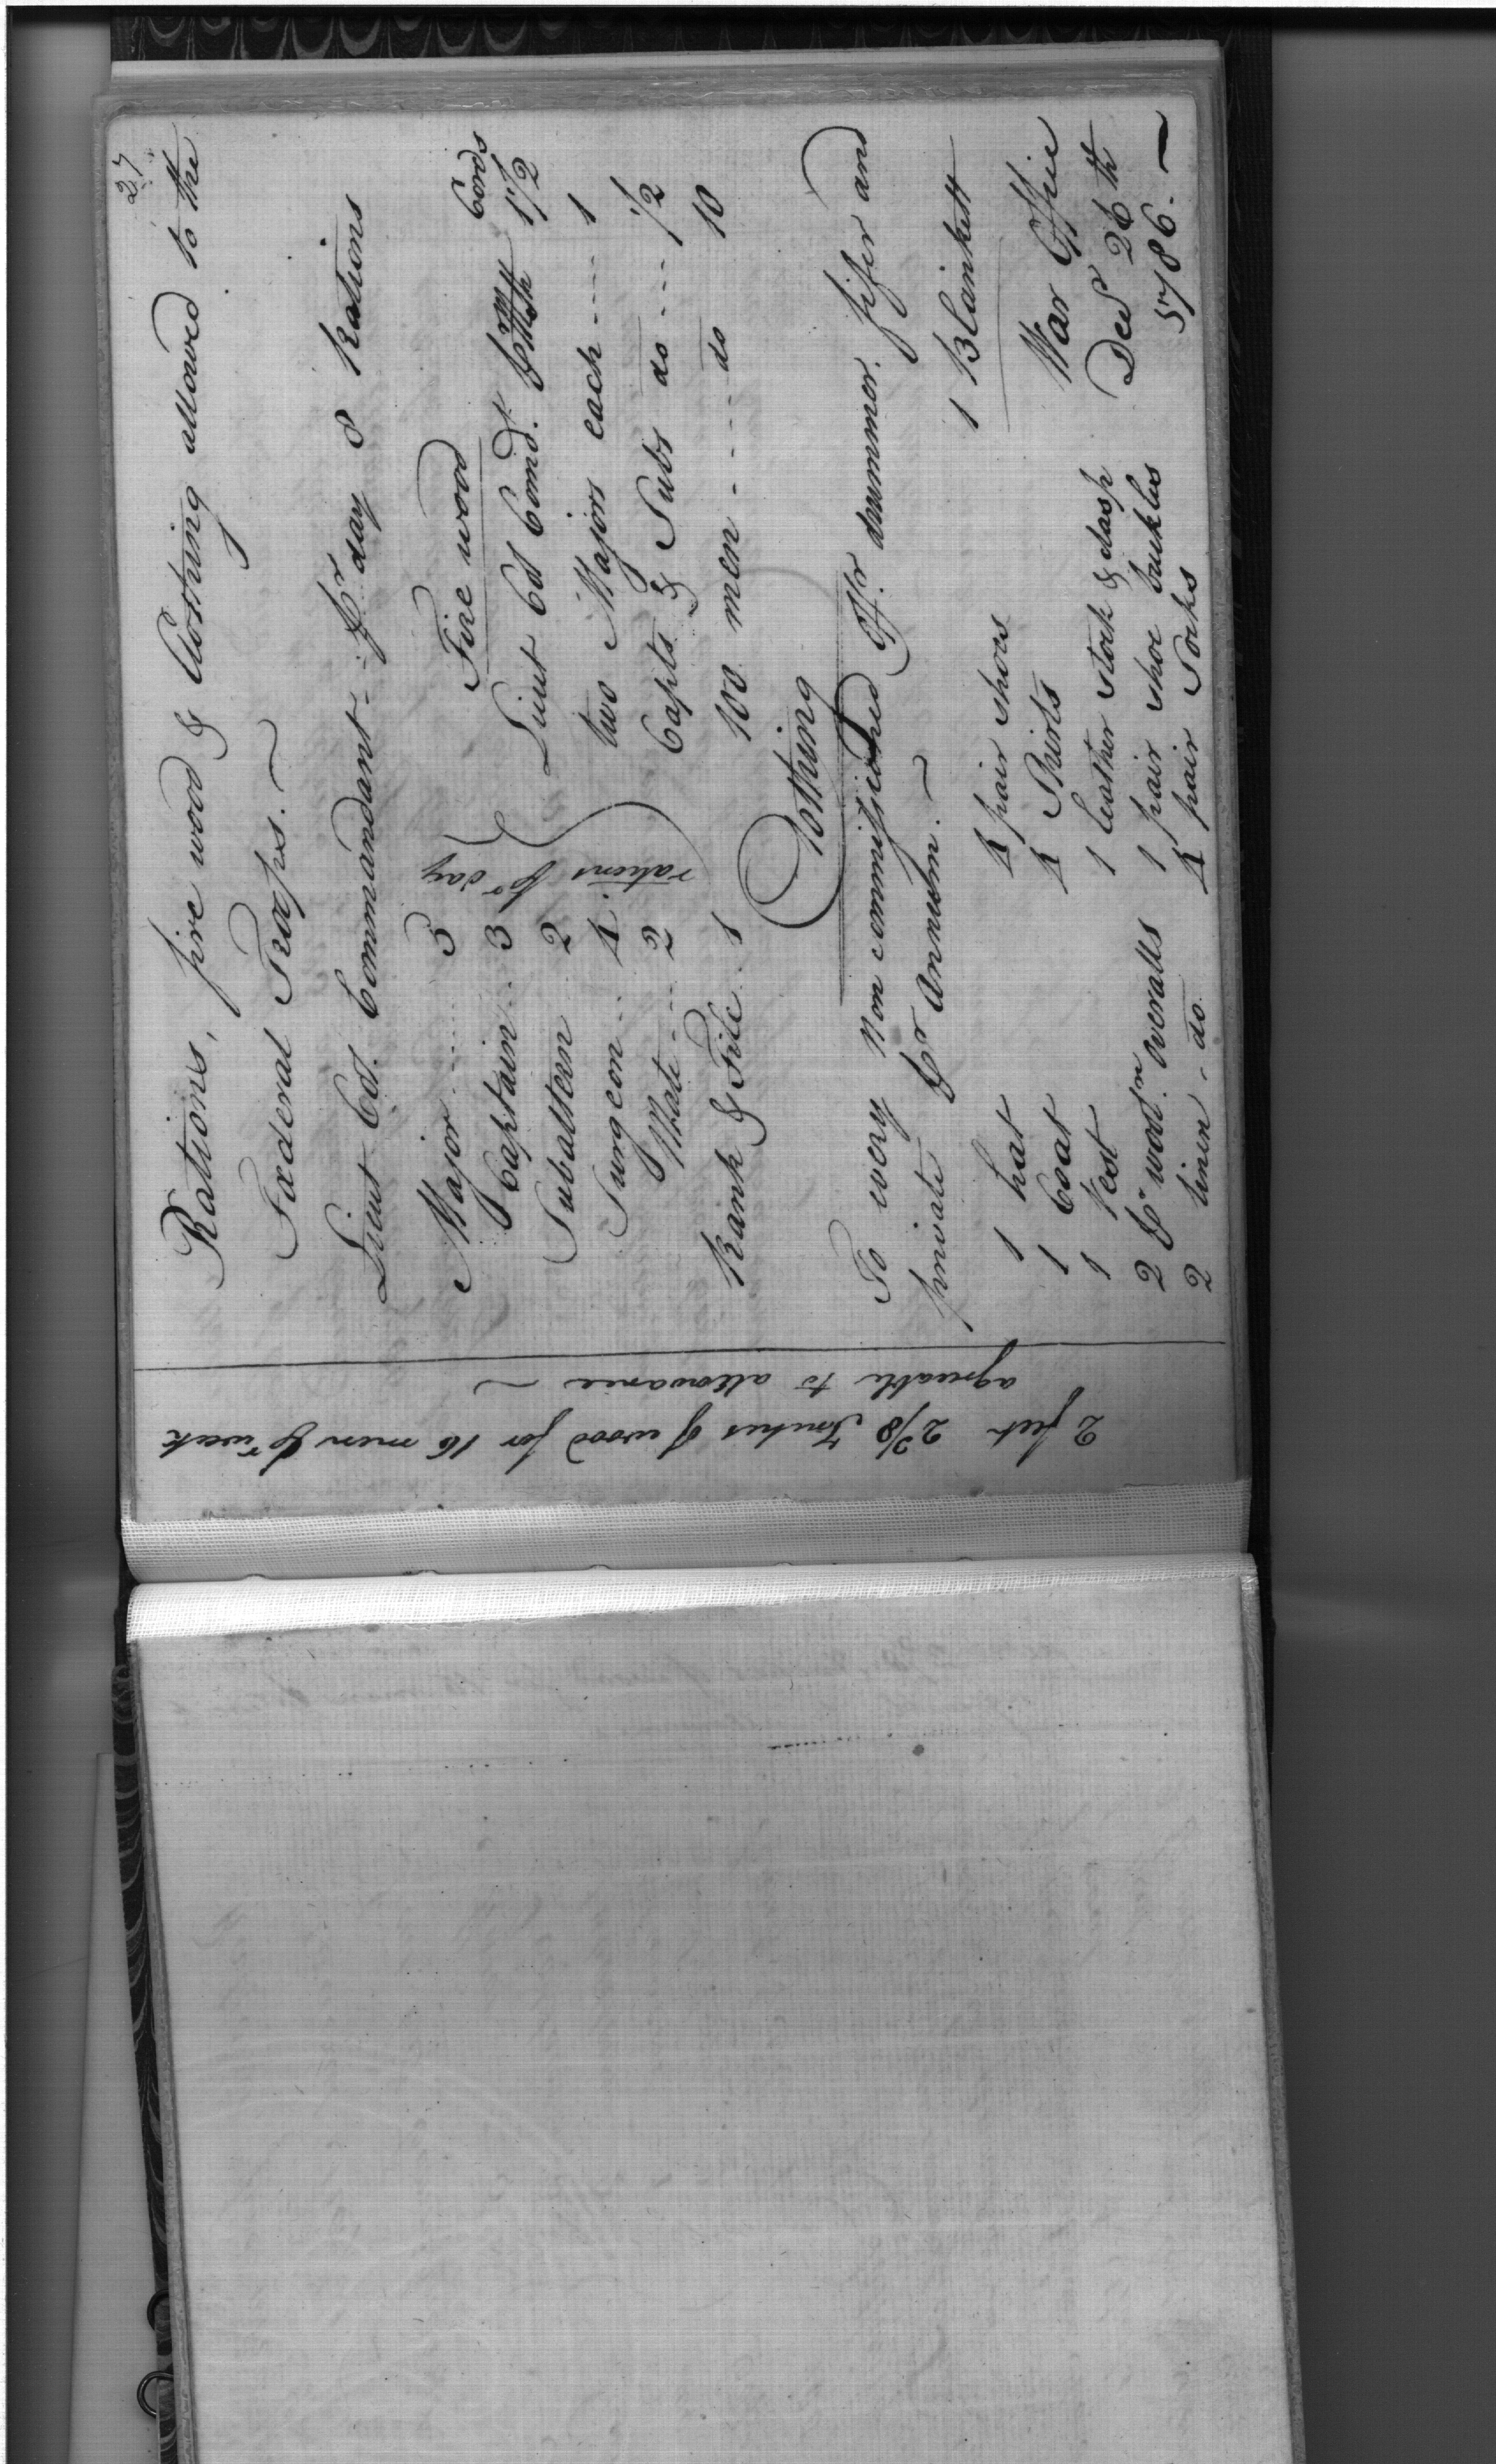 27
Rations, fire wood & Clothing allowed to the
Fœderal Troops.
Lieut Col. Commandant - pr day 8 Rations
Major 5
Captain 3
Subaltern 2
Surgeon 4
Mate 2
Rank & File 1
rations pr day
Fire wood
Cords
Lieut Col Comdt. pr Mth 1 1/2
two Majors each 1
Capts & Subs do 1/2
100 men do 10
Clothing
To every Non commissioned Offr. drummer. fifer and
private pr Annum.
1 hat
1 Coat
1 Vest
2 pr wooln. Overalls
2 linen do.
4 pair shoes
4 Shirts
1 leather stock & clasp
1 pair shoe buckles
4 pair Socks
1 Blankett
War Office
Decr 26th
1786.
2 feet 2 2/8 Inches of wood for 16 men pr week
agreeable to allowance